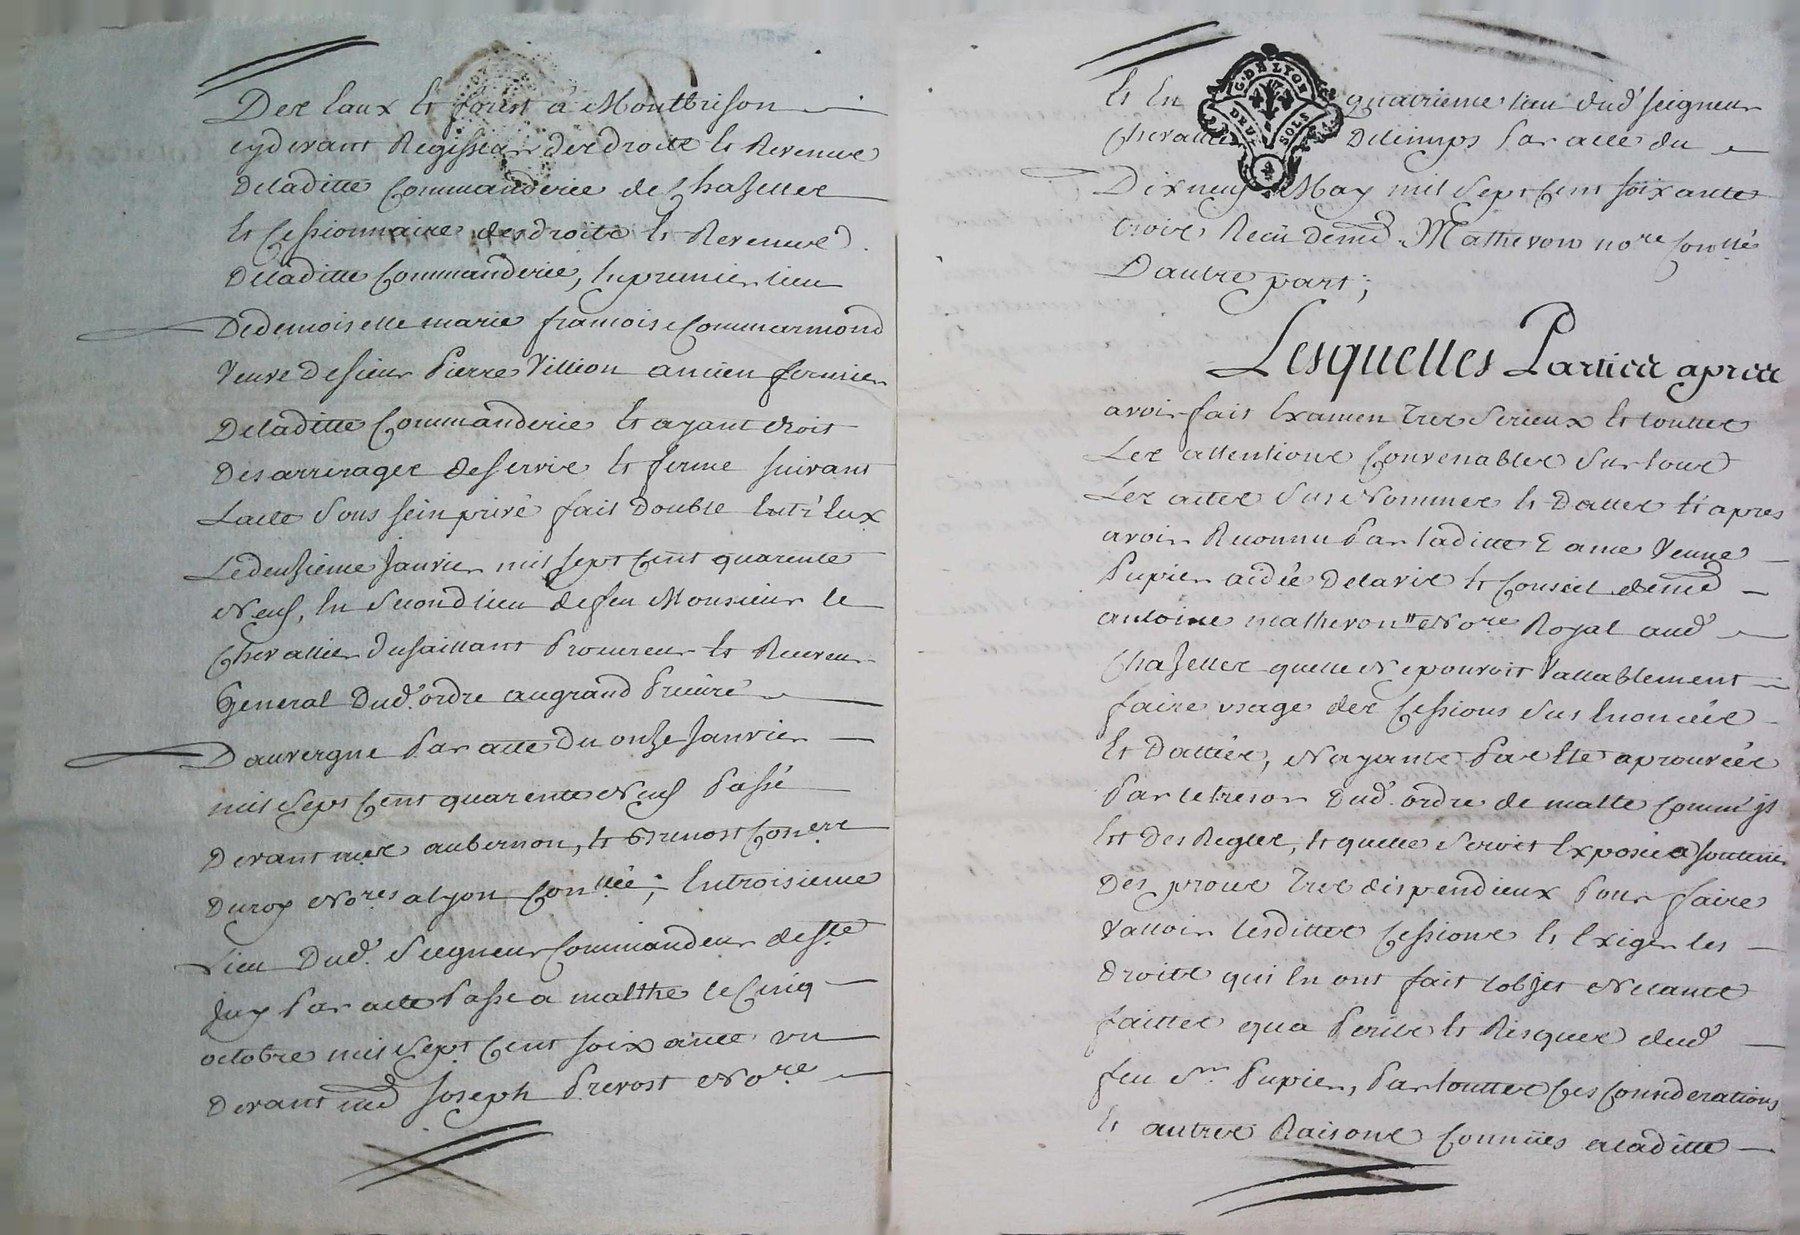 Des Eaux et forest a Montbrison
cydevant Regisseur des droits et Revenus
Deladitte Commanderie de Chazelles
et Cessionnaire desdroits et Revenus
Deladitte Commanderie, en premier lieu
Dedemoiselle marie francoise Commarmond
Veuve desieur Pierre Villion ancien fermier
Deladitte Commanderie et ayant droit
Des arrerages deservis et ferme suivant
Lacte sous sein privé fait Double entr'eux
Ledeuzieme Janvier mil sept Cent quarente
Neuf, En second lieu defeu Monsieur le
Chevallier Dusaillant Procureur et Receveur
General Dud. ordre augrand Prieuré
Dauvergne Par acte Du onze Janvier
mil sept Cent quarente Neuf Passé
Devant mes aubernon, et Grenost Coners
Duroy Nores a Lyon Conllée; En troisieme
Lieu Dud. Seigneur Commandeur deste
Jay Par acte Passé a malthe le Cinq
octobre mil sept Cent soixante un
Devant md Joseph Prevost Nore
G. DE LYON
DEUX SOLS
Et En quatrieme lieu dud. seigneur
Chevallier Deleimps Par acte du
Dix neuf May mil Sept Cent soixante
trois Recu demd Matheron nore Conllé
Dautre part;
Lesquelles Parties apres
avoir fait Examen tres Serieux et touttes
Les attentions Convenables Sur tous
Les actes sus Nommes et Dattes et apres
avoir Reconnu Par laditte Dame Veuve
Pupier aidée Delavis et Conseil demd
antoine matheron Nore Royal aud
Chazelles quelle Nepouvoit Vallablement
faire usage des Cessions sus Enoncées
et Dattées, Nayants Pas Ete aprouvées
Par le tresor Dud. ordre de malte Comm'jl
Est Des Regles, et quelle Seroit Exposée a soutenir
Des proces tres dispendieux Pour faire
Valloir lesdittes Cessions et Exiger les
Droits qui En ont fait lobjet Netants
faittes qua Perils et Risques dud
feu Sr. Pupier, Par touttes Ces Considerations
et autres Raisons Connües aladitte